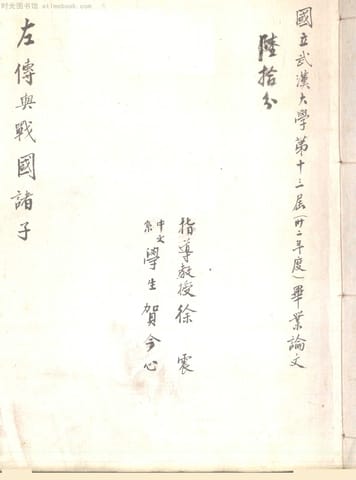 时光图书馆 · atimebook.com
國立武漢大學第十三屆(卅二年度)畢業論文
陸拾分
指導教授徐震
中文系學生賀今心
左傳與戰國諸子